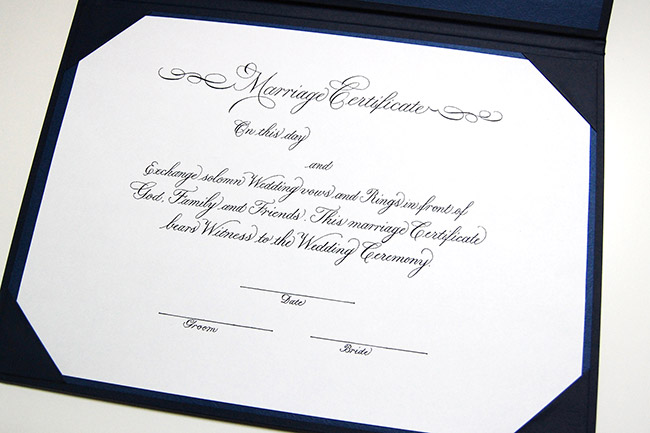 Marriage Certificate
On this day
and
Exchange solomn Wedding vows and Rings in front of
God, Family and Friends. This marriage Certificate
bears Witness to the Wedding Ceremony.
Date
Groom
Bride